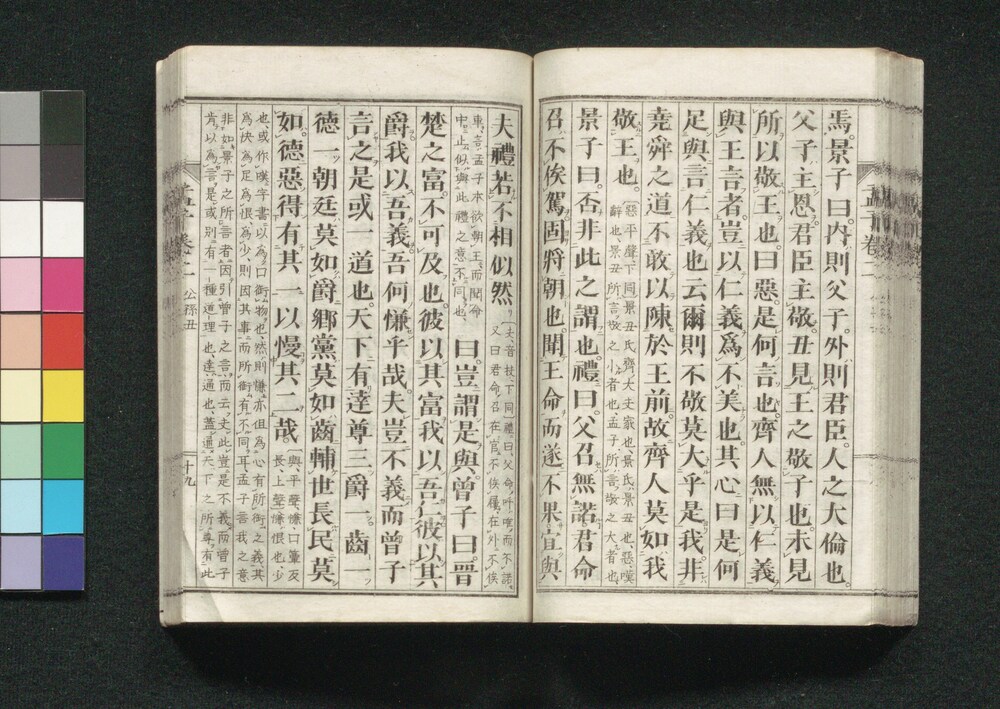 焉景子曰內則父子外則君臣人之大倫也
父子主恩君臣主敬丑見王之敬子也未見
所以敬王也曰惡是何言也齊人無以仁義
與王言者豈以仁義爲不美也其心曰是何
足與言仁義也云爾則不敬莫大乎是我非
堯舜之道不敢以陳於王前故齊人莫如我
敬王也
惡平聲下同景丑氏齊大夫家也景氏景丑也惡嘆
辭也景丑所言敬之小者也孟子所言敬之大者也
景子曰否非此之謂也禮曰父召無諾君命
召不俟駕固將朝也聞王命而遂不果宜與
夫禮若不相似然
夫音扶下同禮曰父命呼唯而不諾
又曰君命召在官不俟屨在外不俟
車言孟子本欲朝王而聞命
中止似與此禮之意不同也
曰豈謂是與曾子曰晉
楚之富不可及也彼以其富我以吾仁彼以其
爵我以吾義吾何慊乎哉夫豈不義而曾子
言之是或一道也天下有達尊三爵一齒一
德一朝廷莫如爵鄉黨莫如齒輔世長民莫
如德惡得有其一以慢其二哉
與平聲慊口簟反
長上聲慊恨也少
也或作嗛字書以爲口銜物也然則慊亦但爲心有所銜之義其
爲快爲足爲恨爲少則因其事而所銜有不同耳孟子言我之意
非如景子之所言者因引曾子之言而云夫此豈是不義而曾子
肯以爲言是或別有一種道理也達通也蓋通天下之所尊有此
孟子卷二
公孫丑
十九